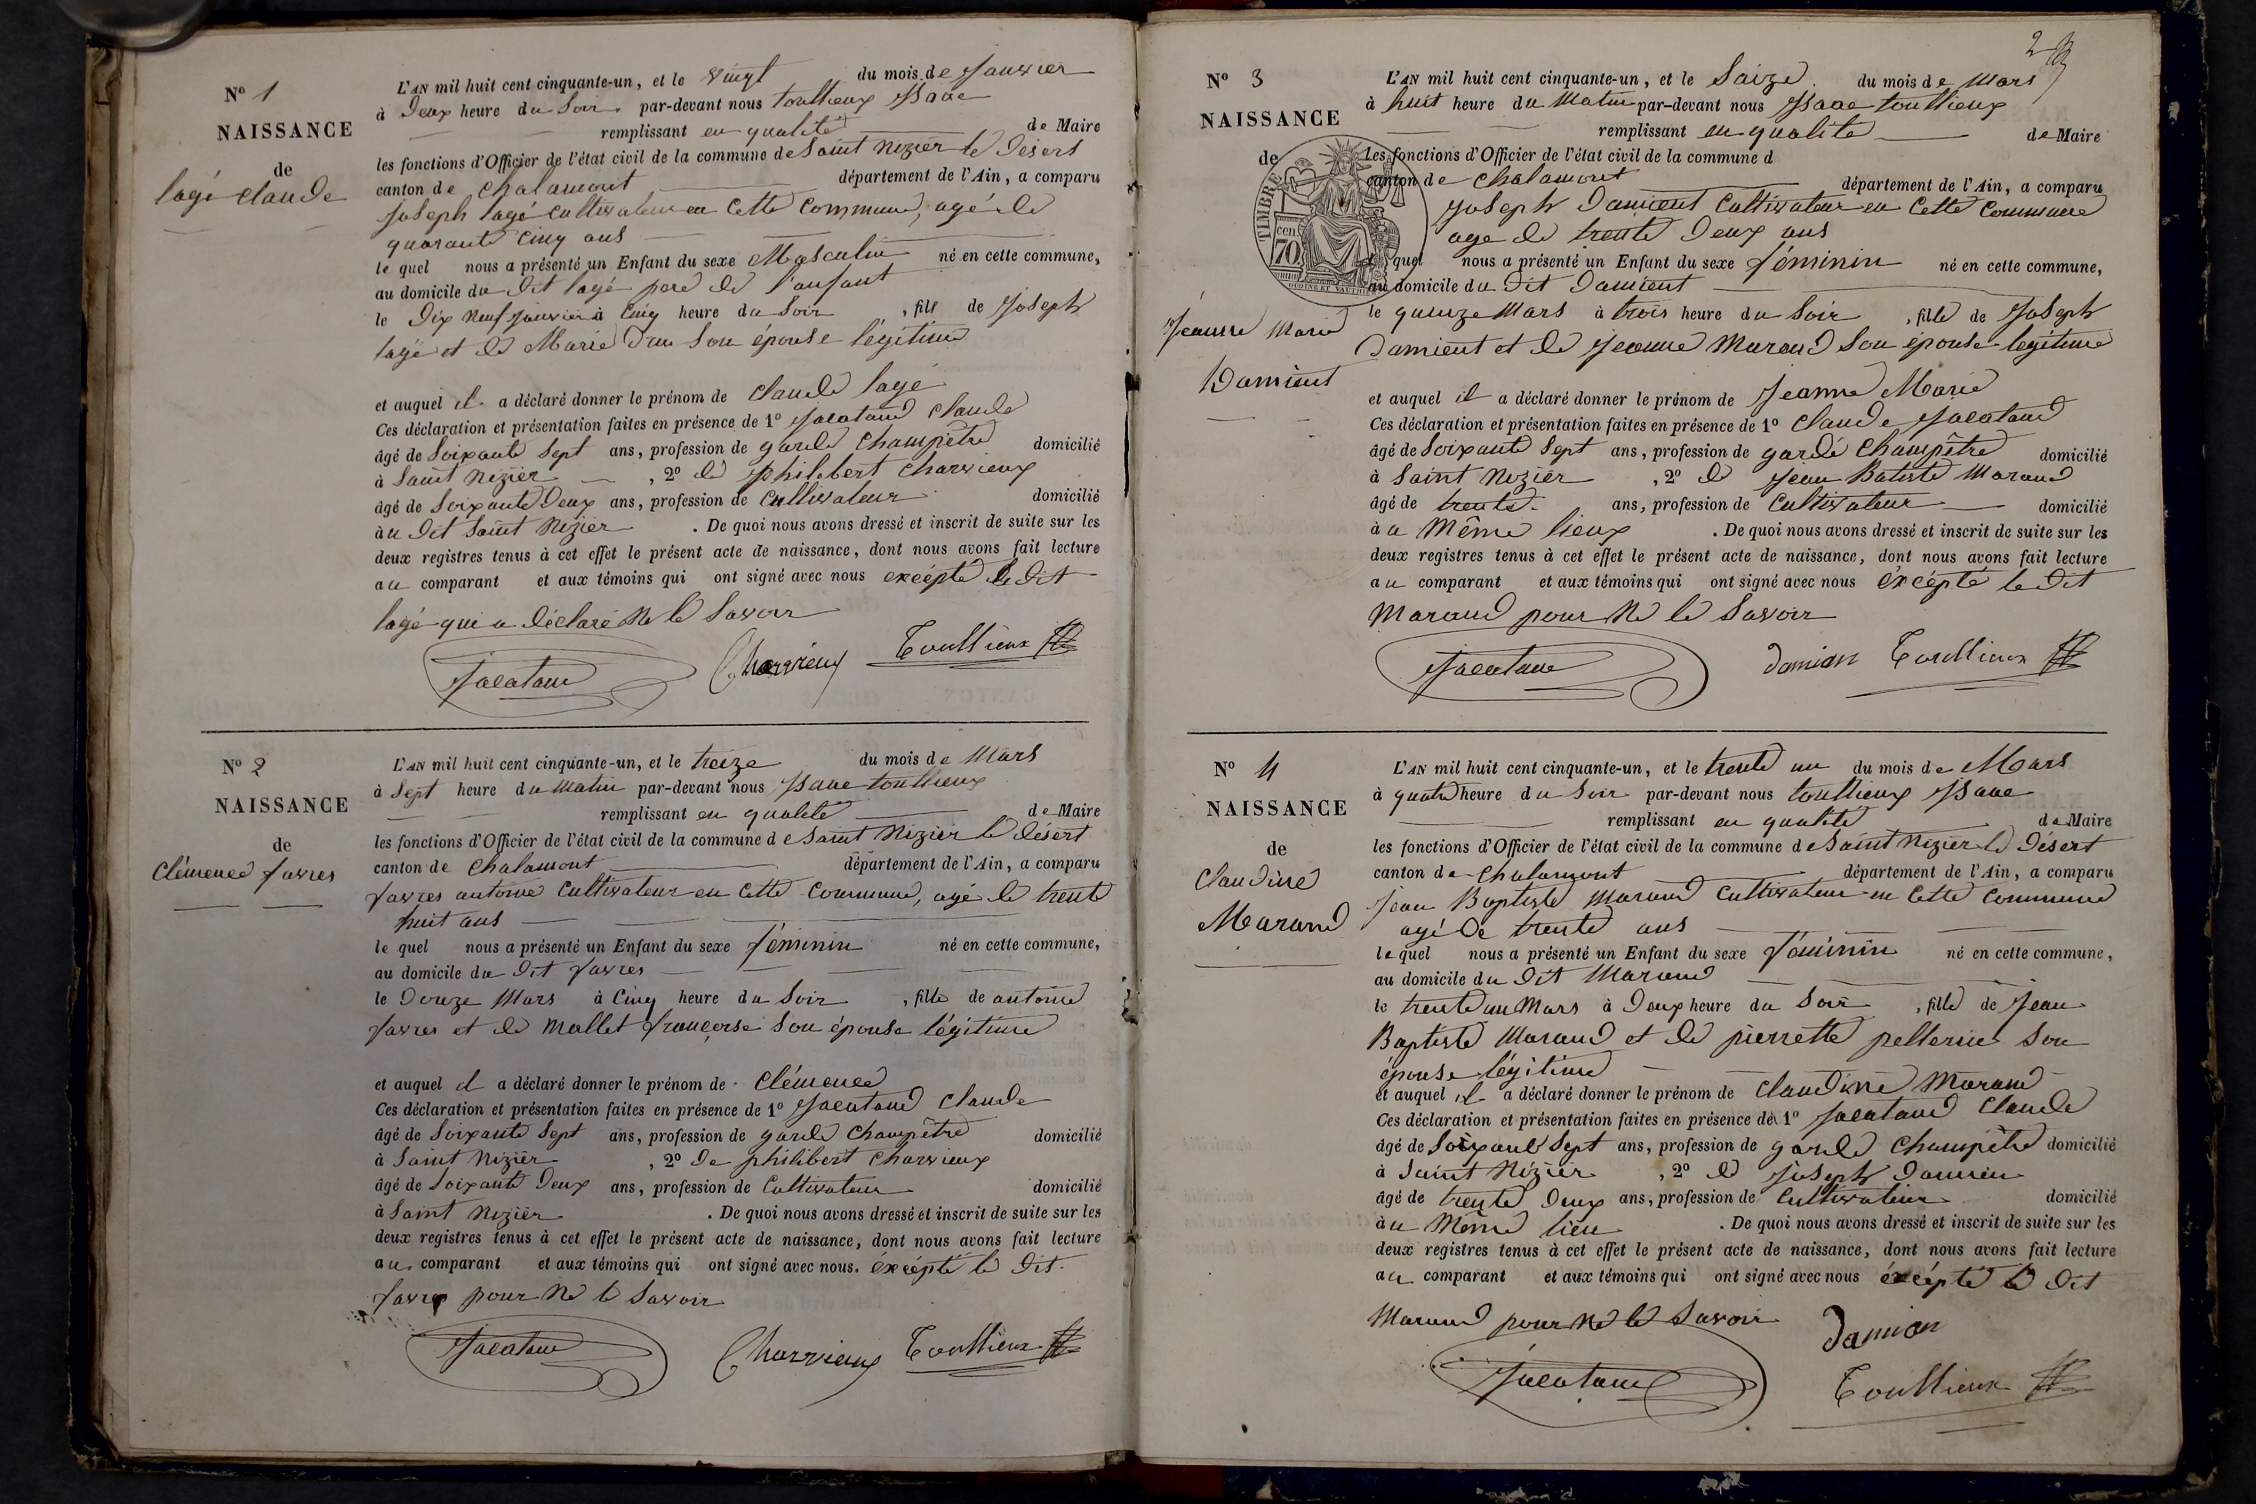 N° 1
NAISSANCE
de
lagé claude
L'AN mil huit cent cinquante-un, et le vingt du mois de Janvier
à Deux heure du Soir par-devant nous toullieux Isaac
remplissant en qualité de Maire
les fonctions d'Officier de l'état civil de la commune de Saint Nizier le Désert
canton de Chalamont département de l'Ain, a comparu
Joseph lagé cultivateur en cette commune, agé de
quarante cinq ans
le quel nous a présenté un Enfant du sexe Masculin né en cette commune,
au domicile du dit lagé pere de l'anfant
le Dix neuf Janvier à Cinq heure du Soir, fils de Joseph
lagé et de Marie Dru Son épouse légitime
et auquel il a déclaré donner le prénom de claude lagé
Ces déclaration et présentation faites en présence de 1° Jacataud Claude
âgé de Soixante Sept ans, profession de garde Champêtre domicilié
à Saint Nizier, 2° de philibert Charvieux
âgé de Soixante Deux ans, profession de Cultivateur domicilié
à au Dit Saint Nizier. De quoi nous avons dressé et inscrit de suite sur les
deux registres tenus à cet effet le présent acte de naissance, dont nous avons fait lecture
au comparant et aux témoins qui ont signé avec nous excépté le Dit
lagé qui a déclaré Ne le Savoir
Jacataud Charvieux Toullieux
N° 2
NAISSANCE
de
Clémence favres
L'AN mil huit cent cinquante-un, et le treize du mois de Mars
à Sept heure du Matin par-devant nous Isaac toullieux
remplissant en qualité de Maire
les fonctions d'Officier de l'état civil de la commune de Saint Nizier le Désert
canton de Chalamont département de l'Ain, a comparu
favres antoine Cultivateur en cette Commune, agé de trente
huit ans
le quel nous a présenté un Enfant du sexe féminin né en cette commune,
au domicile du Dit favres
le Douze Mars à Cinq heure du Soir, fille de antoine
favres et de Mallet françoise Son épouse légitime
et auquel il a déclaré donner le prénom de Clémence
Ces déclaration et présentation faites en présence de 1° Jacataud Claude
âgé de Soixante Sept ans, profession de garde Champêtre domicilié
à Saint Nizier, 2° de philibert Charvieux
âgé de Soixante Deux ans, profession de Cultivateur domicilié
à Saint Nizier. De quoi nous avons dressé et inscrit de suite sur les
deux registres tenus à cet effet le présent acte de naissance, dont nous avons fait lecture
au comparant et aux témoins qui ont signé avec nous. éxcépté le Dit
favre pour Ne le Savoir
Jacataud Charvieux Toullieux
2
N° 3
NAISSANCE
de
TIMBRE
cen. 70
Jeanne Marie
Damient
L'AN mil huit cent cinquante-un, et le Saize du mois de Mars
à huit heure du Matin par-devant nous Isaac toullieux
remplissant en qualité de Maire
Les fonctions d'Officier de l'état civil de la commune d
canton de Chalamont département de l'Ain, a comparu
Joseph Damient Cultivateur en Cette Commune
age de trente Deux ans
le quel nous a présenté un Enfant du sexe féminin né en cette commune,
au domicile du Dit Damient
le quinze Mars à trois heure du Soir, fille de Joseph
Damient et de Jeanne Maraud Son épouse légitime
et auquel il a déclaré donner le prénom de Jeanne Marie
Ces déclaration et présentation faites en présence de 1° Claude Jacataud
âgé de Soixante Sept ans, profession de garde Champêtre domicilié
à Saint Nizier, 2° de Jean Batiste Maraud
âgé de trente ans, profession de Cultivateur domicilié
à u Même lieux. De quoi nous avons dressé et inscrit de suite sur les
deux registres tenus à cet effet le présent acte de naissance, dont nous avons fait lecture
au comparant et aux témoins qui ont signé avec nous éxcépté le Dit
Maraud pour Ne le Savoir
Jacataud Damian Toullieux
N° 4
NAISSANCE
de
Claudine
Maraud
L'AN mil huit cent cinquante-un, et le trente un du mois de Mars
à quatre heure du Soir par-devant nous toullieux Isaac
remplissant en qualité de Maire
les fonctions d'Officier de l'état civil de la commune de Saint Nizier le Désert
canton de Chalamont département de l'Ain, a comparu
Jean Baptiste Maraud Cultivateur en Cette Commune
agé de trente ans
le quel nous a présenté un Enfant du sexe féminin né en cette commune,
au domicile du Dit Maraud
le trente un Mars à Deux heure du Soir, fille de Jean
Baptiste Maraud et de pierrette pellerin Son
épouse légitime
et auquel il a déclaré donner le prénom de Claudine Maraud
Ces déclaration et présentation faites en présence de 1° Jacataud Claude
âgé de Soixante Sept ans, profession de garde Champêtre domicilié
à Saint Nizier, 2° de Joseph Damien
âgé de trente Deux ans, profession de Cultivateur domicilié
à u Même lieu. De quoi nous avons dressé et inscrit de suite sur les
deux registres tenus à cet effet le présent acte de naissance, dont nous avons fait lecture
au comparant et aux témoins qui ont signé avec nous éxcépté le Dit
Maraud pour Ne le Savoir
Damian
Jacataud Toullieux